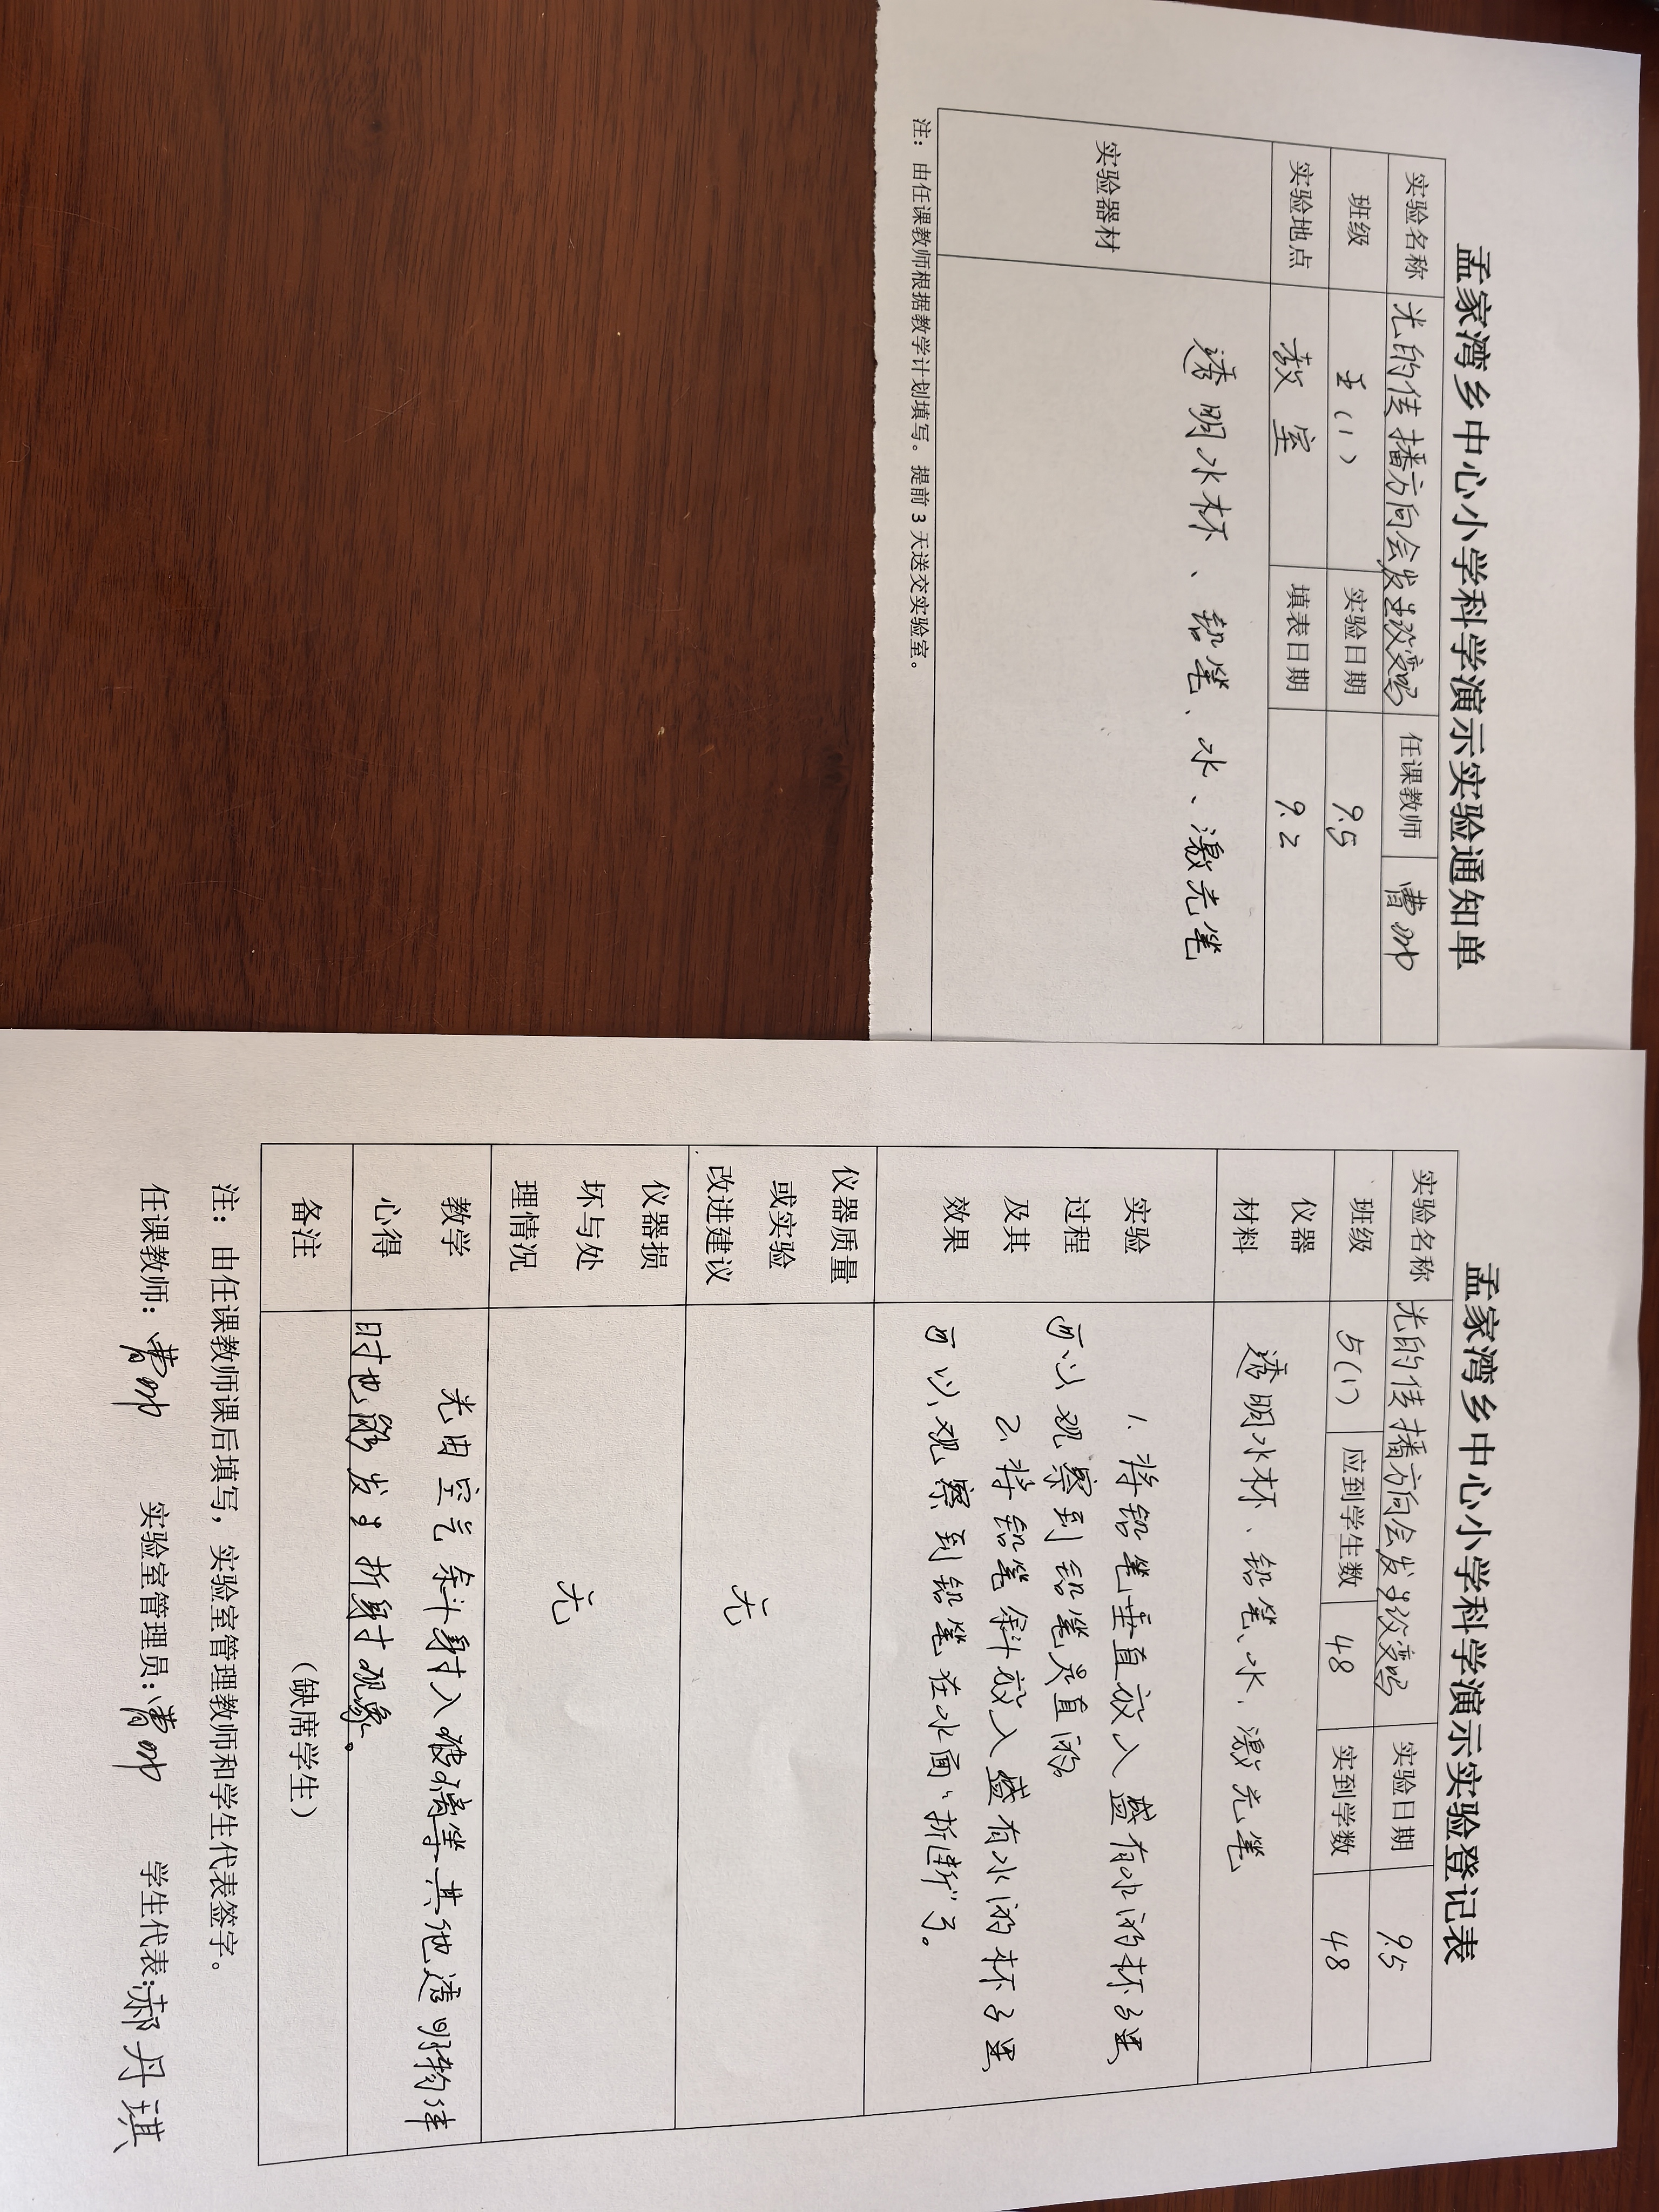 孟家湾乡中心小学科学演示实验通知单
实验名称 光的传播方向会发生改变吗 任课教师 曹帅
班级 五(1) 实验日期 9.5
实验地点 教室 填表日期 9.2
实验器材 透明水杯、铅笔、水、激光笔
注：由任课教师根据教学计划填写。提前 3 天送交实验室。
孟家湾乡中心小学科学演示实验登记表
实验名称 光的传播方向会发生改变吗 实验日期 9.5
班级 5(1) 应到学生数 48 实到学数 48
仪器材料 透明水杯、铅笔、水、激光笔
实验过程及其效果
1. 将铅笔垂直放入盛有水的杯子里，
可以观察到铅笔是直的
2. 将铅笔斜放入盛有水的杯子里，
可以观察到铅笔在水面"折断"了。
仪器质量或实验改进建议 无
仪器损坏与处理情况 无
教学心得
光由空气斜射入玻璃等其他透明物体
时也能发生折射现象。
备注 （缺席学生）
注：由任课教师课后填写，实验室管理教师和学生代表签字。
任课教师：曹帅 实验室管理员：曹帅 学生代表：郝丹琪